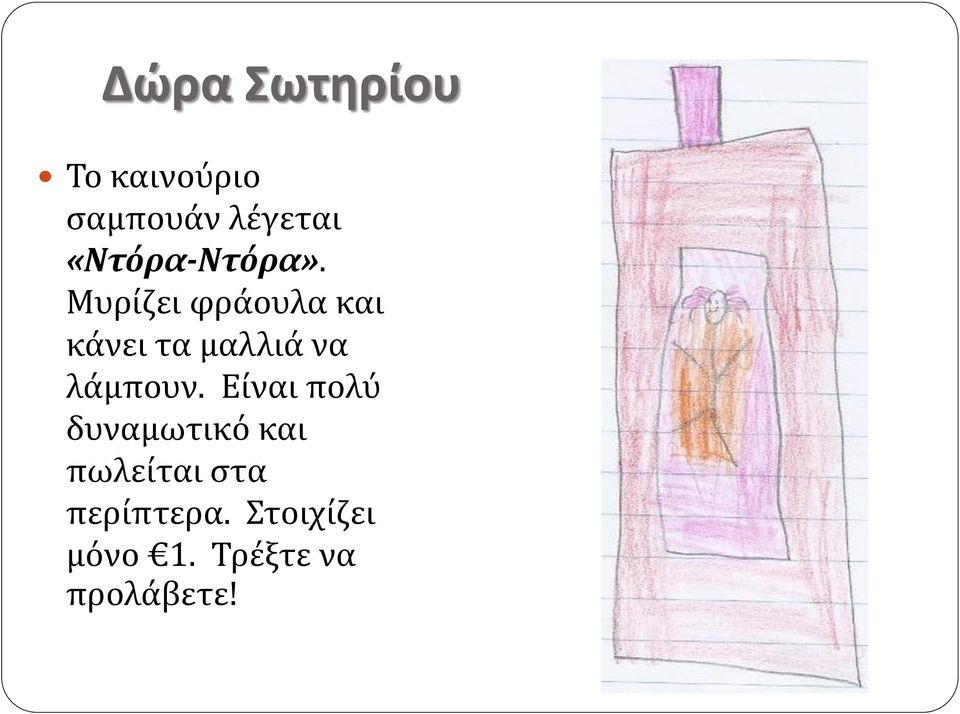 Δώρα Σωτηρίου
Το καινούριο
σαμπουάν λέγεται
«Ντόρα-Ντόρα».
Μυρίζει φράουλα και
κάνει τα μαλλιά να
λάμπουν. Είναι πολύ
δυναμωτικό και
πωλείται στα
περίπτερα. Στοιχίζει
μόνο €1. Τρέξτε να
προλάβετε!